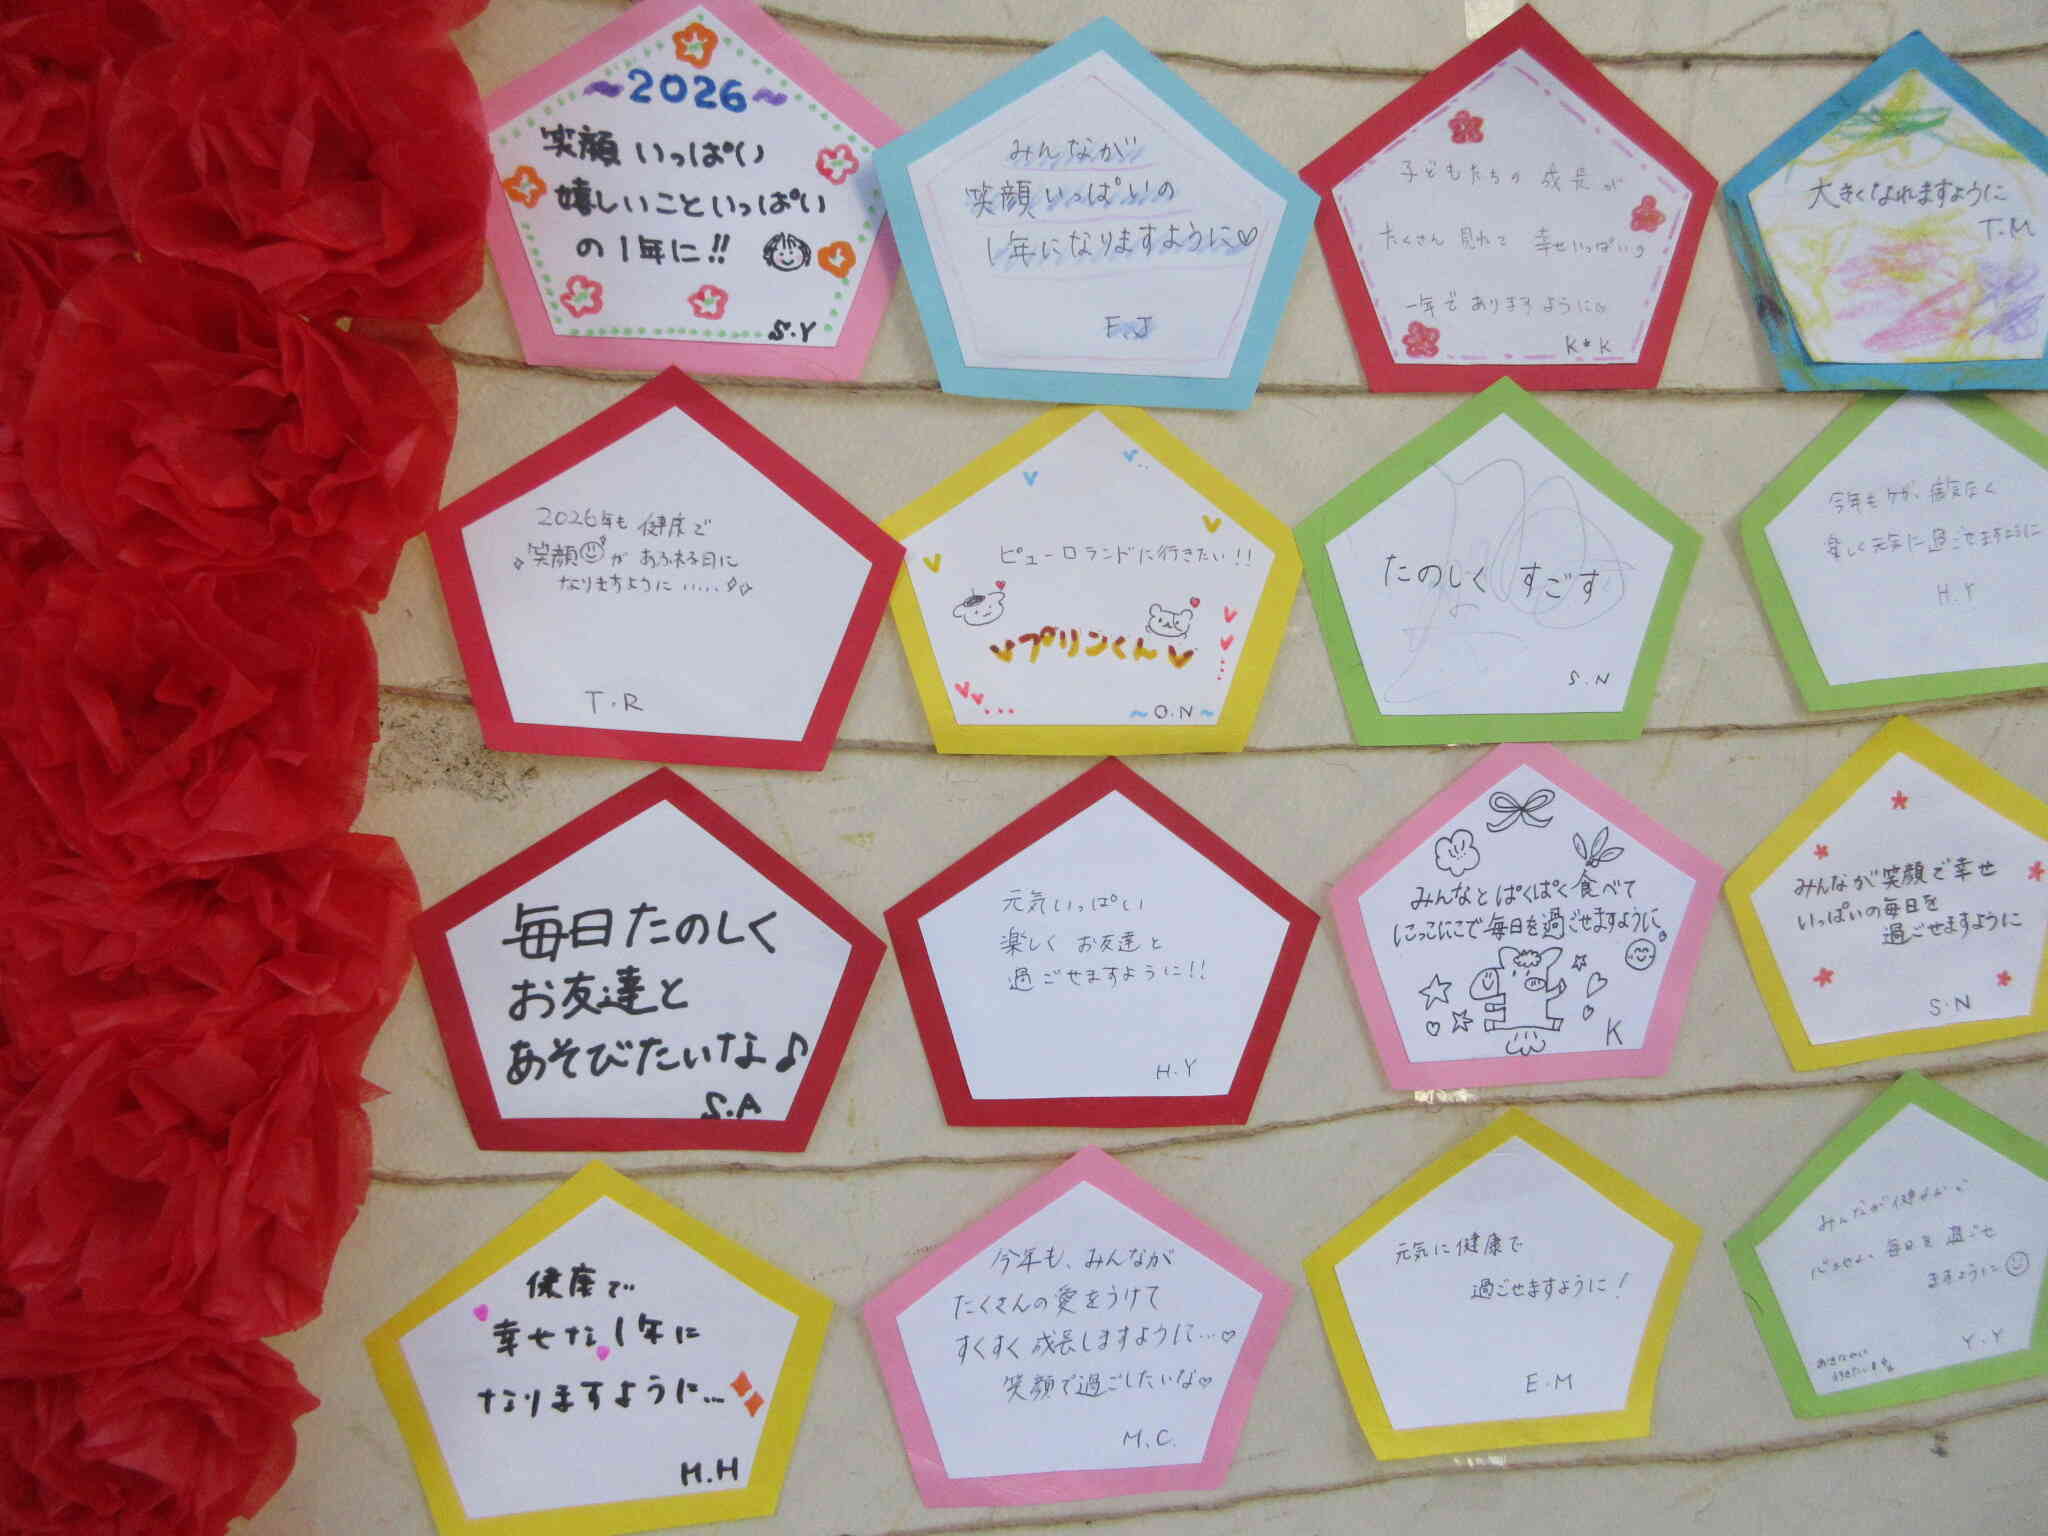 ～2026～
笑顔いっぱい
嬉しいこといっぱい
の1年に!!
S.Y
みんなが
笑顔いっぱいの
1年になりますように♡
E.J
子どもたちの成長が
たくさん見れて 幸せいっぱいの
一年でありますように♡
K*K
大きくなれますように
T.M
2026年も健康で
笑顔が あふれる日に
なりますように……
T.R
ピューロランドに行きたい!!
プリンくん
～O.N～
たのしく すごす
S.N
今年もケガ、病気なく
楽しく元気に過ごせますように
H.Y
毎日たのしく
お友達と
あそびたいな♪
S.A
元気いっぱい
楽しく お友達と
過ごせますように!!
H.Y
みんなとぱくぱく食べて
にこにこで毎日を過ごせますように
K
みんなが笑顔で幸せ
いっぱいの毎日を
過ごせますように
S.N
健康で
幸せな1年に
なりますように…
H.H
今年も、みんなが
たくさんの愛をうけて
すくすく成長しますように…♡
笑顔で過ごしたいな♡
M.C.
元気に健康で
過ごせますように!
E.M
みんなが健
毎日を過ごせ
ますように
Y.Y